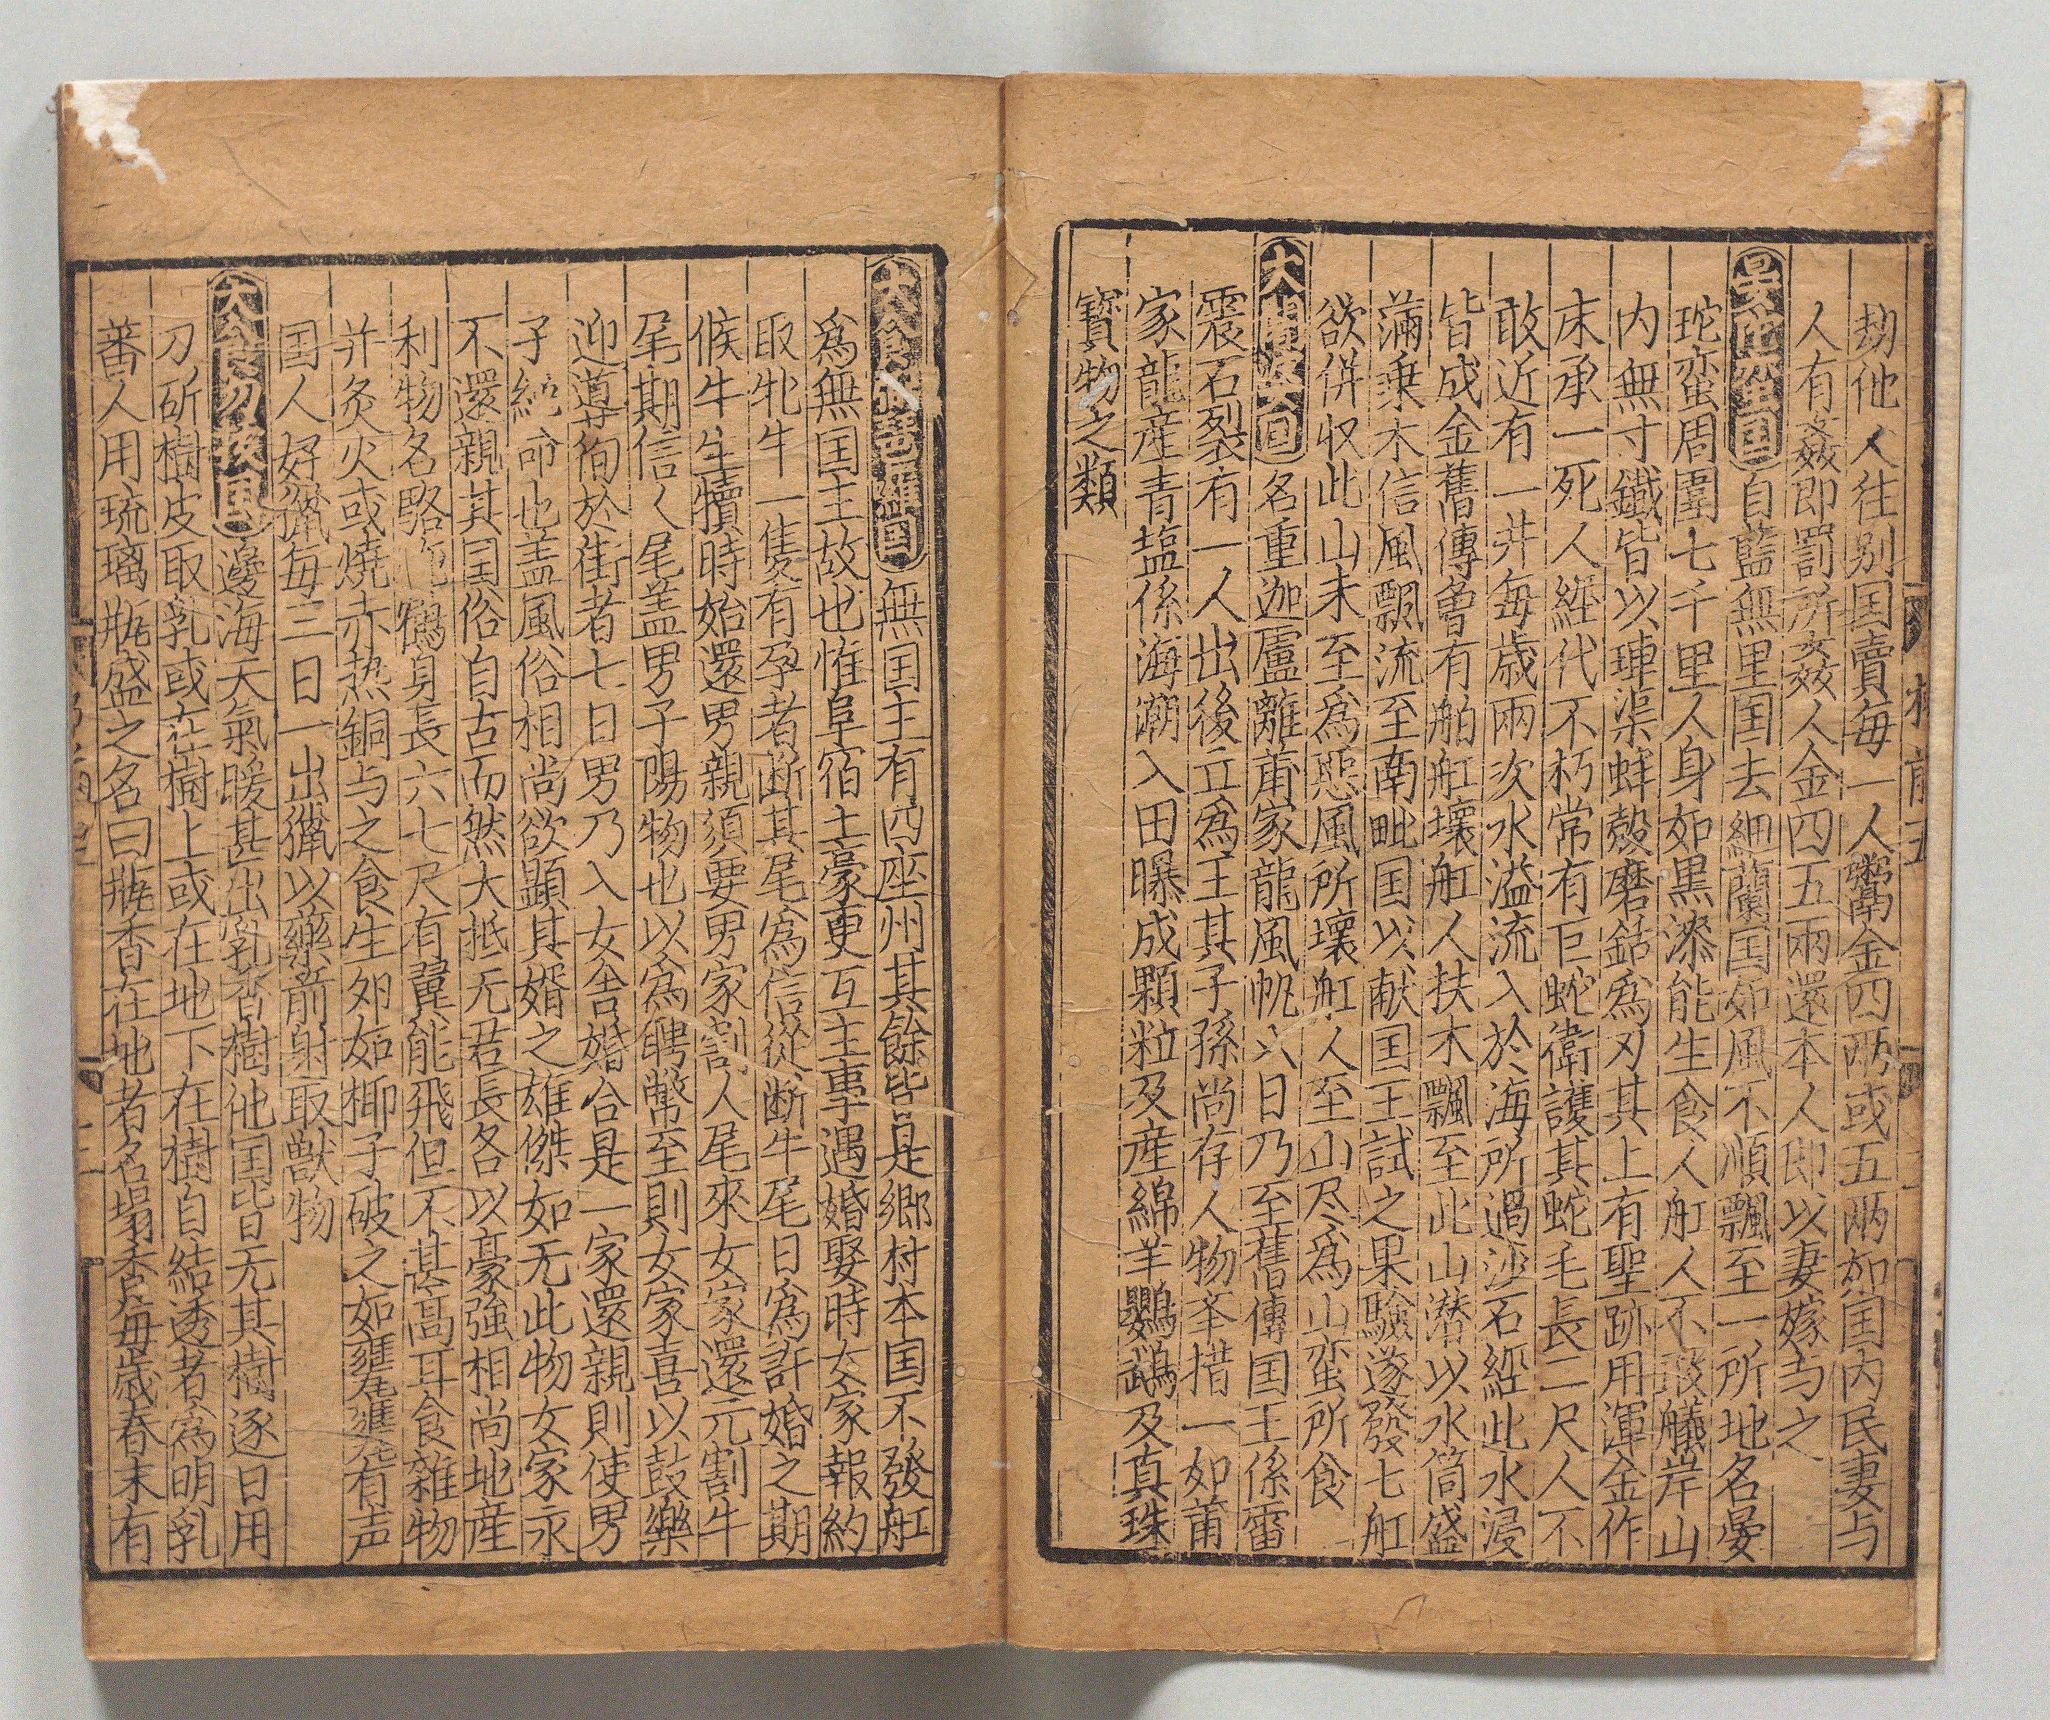 劫他人往别国賣每一人鬻金四兩或五兩如国内民妻与
人有姦即罰所姦人金四五兩還本人即以妻嫁与之
自藍無里国去細蘭国如風不順飄至一所地名晏
陀蛮周圍七千里人身如黒漆能生食人舡人不敢艤岸山
内無寸鐵皆以硨渠蚌殻磨銛為刃其上有聖跡用渾金作
床承一死人經代不朽常有巨蛇衛護其蛇毛長二尺人不
敢近有一井每歳兩次水溢流入於海所過沙石經此水浸
皆成金舊傳曾有舶舡壞舡人扶木飄至此山潜以水筒盛
滿乗木信風飄流至南毗国以献国王試之果驗遂發七舡
欲併収此山未至為惡風所壞舡人至山尽為山蛮所食
大闍婆国 名重迦盧離莆家龍風帆八日乃至舊傳国王係雷
震石裂有一人出後立為王其子孫尚存人物举措一如莆
家龍産青塩係海潮入田曝成顆粒及産綿羊鸚鵡及真珠
寳物之類
大食弼琶羅国 無国主有四座州其餘皆是郷村本国不發舡
為無国主故也惟阜宿土豪更互主事遇婚娶時女家報約
取牝牛一隻有孕者断其尾為信從断牛尾日為許婚之期
候牛生犢時始還男親須要男家割人尾來女家還元割牛
尾期信人尾盖男子陽物也以為聘幣至則女家喜以鼓樂
迎導徇於街者七日男乃入女舎婚合是一家還親則使男
子統命也盖風俗相尚欲顕其婿之雄傑如无此物女家永
不還親其国俗自古而然大抵无君長各以豪強相尚地産
利物名駱駝鶴身長六七尺有翼能飛但不甚高耳食雑物
并炙火或燒赤热銅与之食生夘如揶子破之如甕甕有声
国人好獵每三日一出獵以藥箭射取獸物
大食勿拔国 邊海天氣暖甚出乳香樹他国皆无其樹逐日用
刀斫樹皮取乳或在樹上或在地下在樹自結透者為明乳
蕃人用琉璃瓶盛之名曰瓶香在地者名塌香每歳春末有